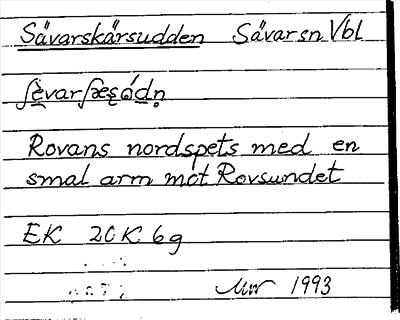 Sävarskärsudden Sävar sn Vbl
Rovans nordspets med en
smal arm mot Rovsundet
EK 20K 6g
1993